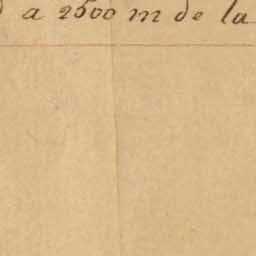 a 2500 m de la